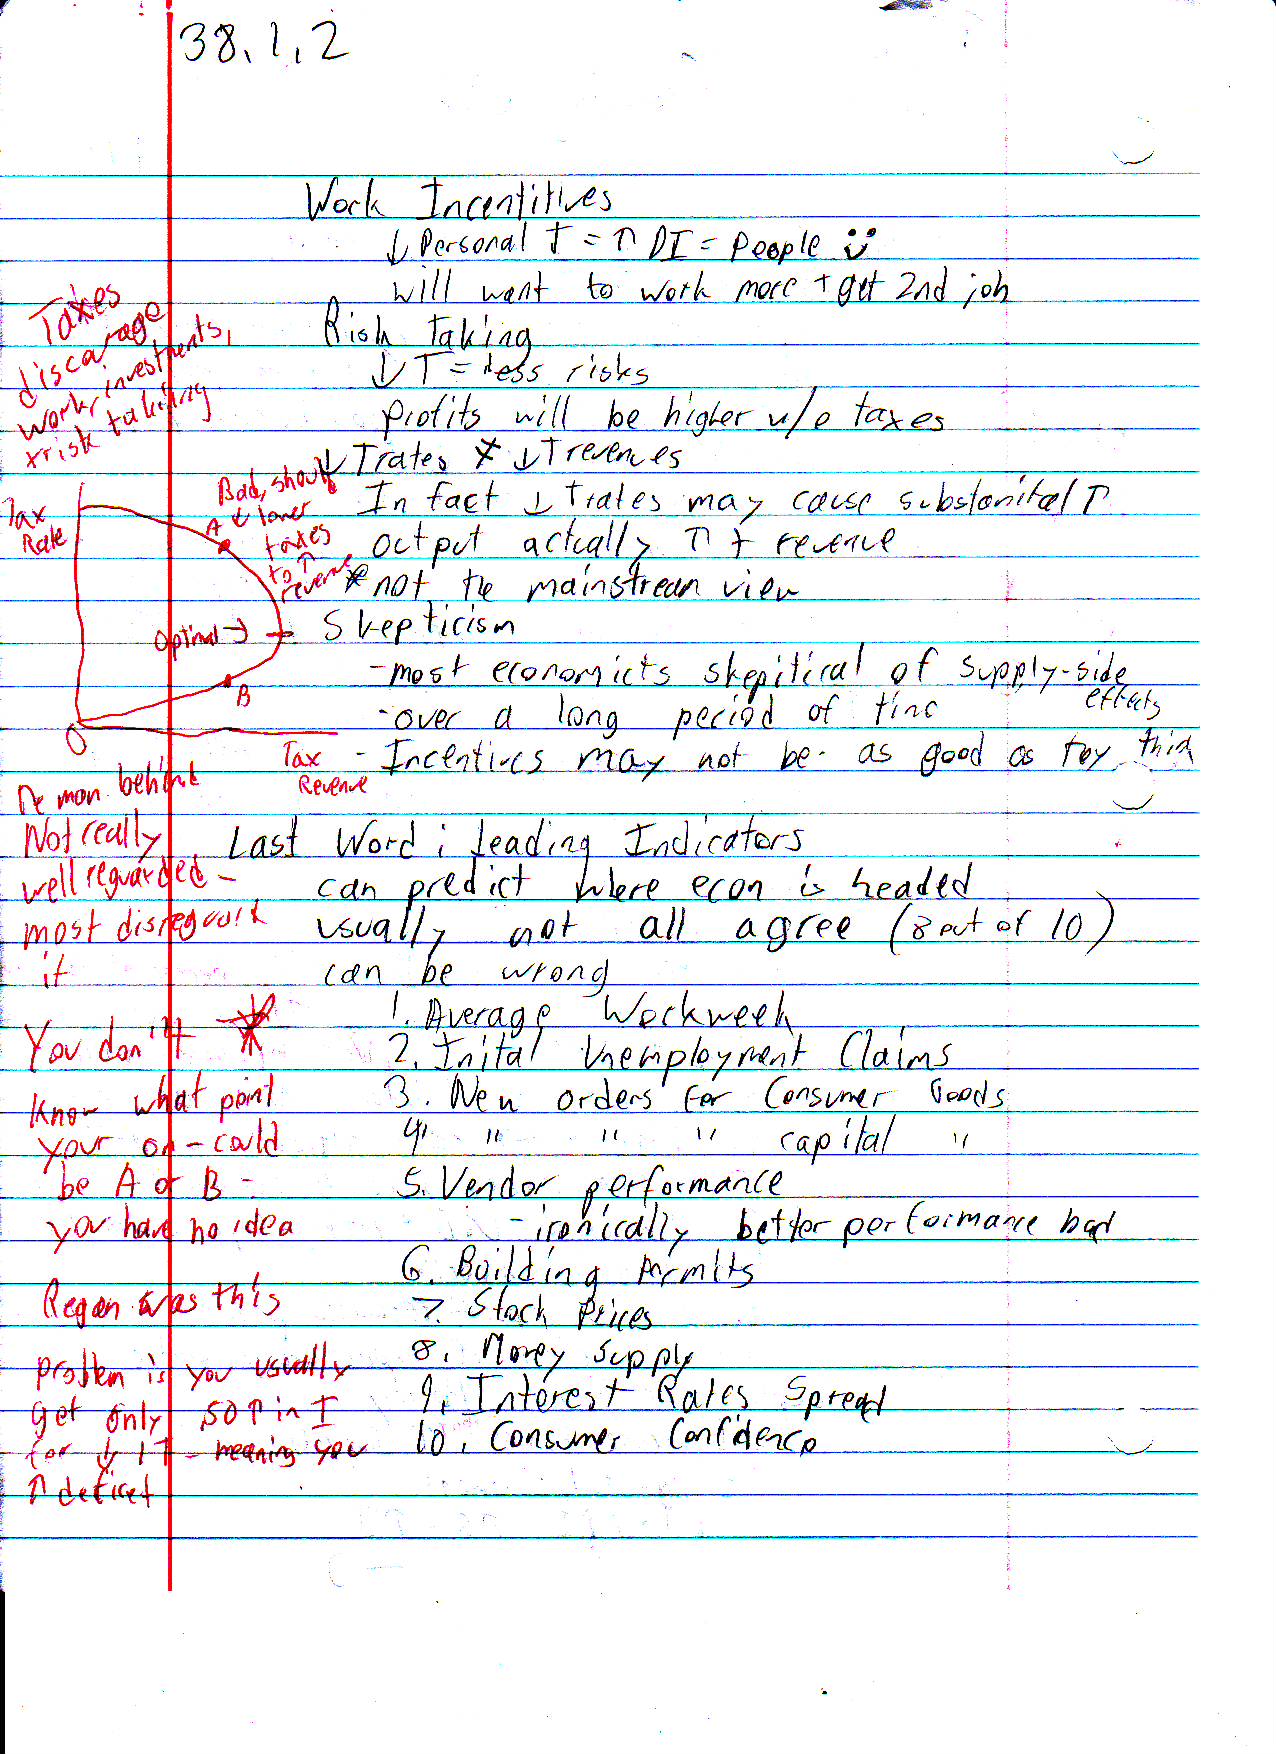 38.1.2
Work Incentitives
↓ Personal T = ↑ DI = People
will want to work more + get 2nd job
Risk taking
↓ T = less risks
Profits will be higher w/o taxes
↓ T rates ≠ ↓ T revenues
In fact ↓ T rates may cause substanital ↑
output actually ↑ T revenue
* not the mainstream view
Skepticism
- most economicts skepitical of supply-side
effects
- over a long period of time
- Incentives may not be as good as they think
Last Word: Leading Indicators
can predict where econ is headed
usually not all agree (8 out of 10)
can be wrong
1. Average Workweek
2. Inital Unemployment Claims
3. New orders for Consumer Goods
4. " " " capital "
5. Vendor performance
- ironically better performance bad
6. Building Permits
7. Stock Prices
8. Money Supply
9. Interest Rates Spread
10. Consumer Confidence
Taxes
discarage
work, investments,
+risk taking
Tax
Rate
Bad, should
A lower
taxes
to ↑
revenue
Optimal →
B
0
Tax
Revenue
man behind
Not really
well reguarded -
most disreguard
it
You don't
know what point
your on - could
be A or B -
you have no idea
Regan was this
problem is you usually
get only .50 ↑ in T
for ↓ 1 T - meaning you
↑ deficet